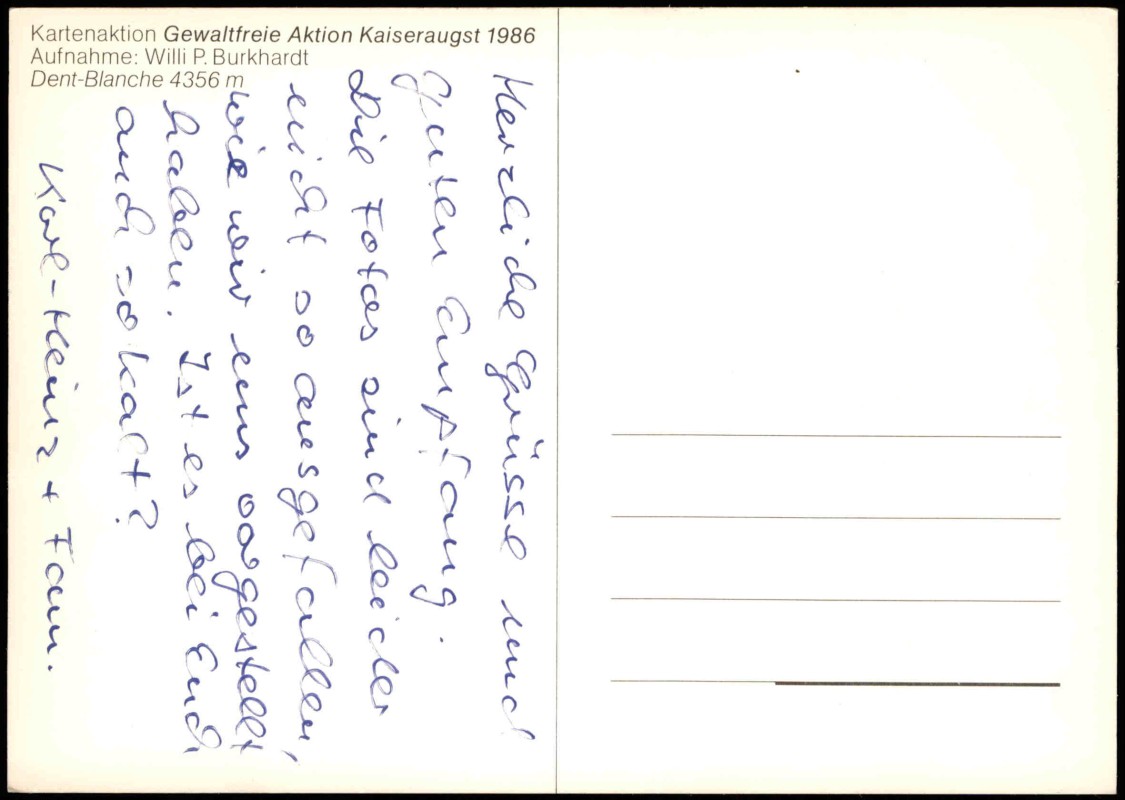 Kartenaktion Gewaltfreie Aktion Kaiseraugst 1986
Aufnahme: Willi P. Burkhardt
Dent-Blanche 4356 m
Herzliche Grüsse und
guten Empfang.
Die Fotos sind leider
nicht so ausgefallen,
wie wir uns vorgestellt
haben. Ist es bei Euch
auch so kalt?
Karl-Heinz + Fam.